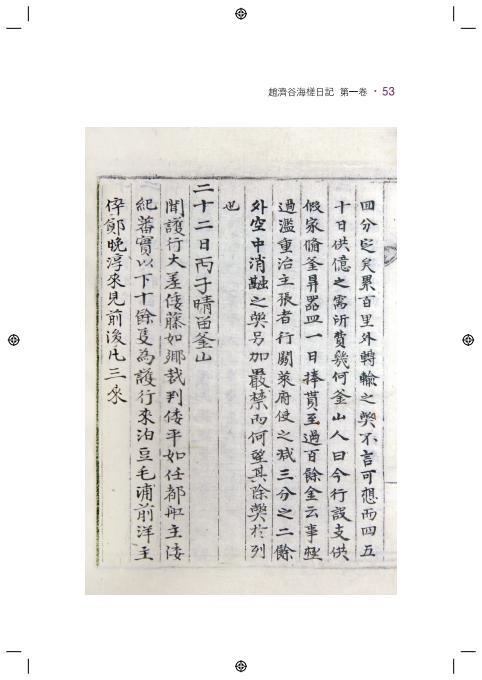 趙濟谷海槎日記 第一卷 · 53
回分定矣累百里外轉輸之弊不言可想而四五
十日供億之需所費幾何釜山人曰今行設支供
假家備釜鼎器皿一日捧貰至過百餘金云事極
過濫重治主張者行關萊府使之減三分之二餘
外空中消融之弊另加嚴禁而何望其除弊於列
也
二十二日丙子晴留釜山
聞護行大差倭藤如鄕裁判倭平如任都舡主倭
紀蕃實以下十餘隻為護行來泊豆毛浦前洋主
倅鄭晩淳來見前後凡三來